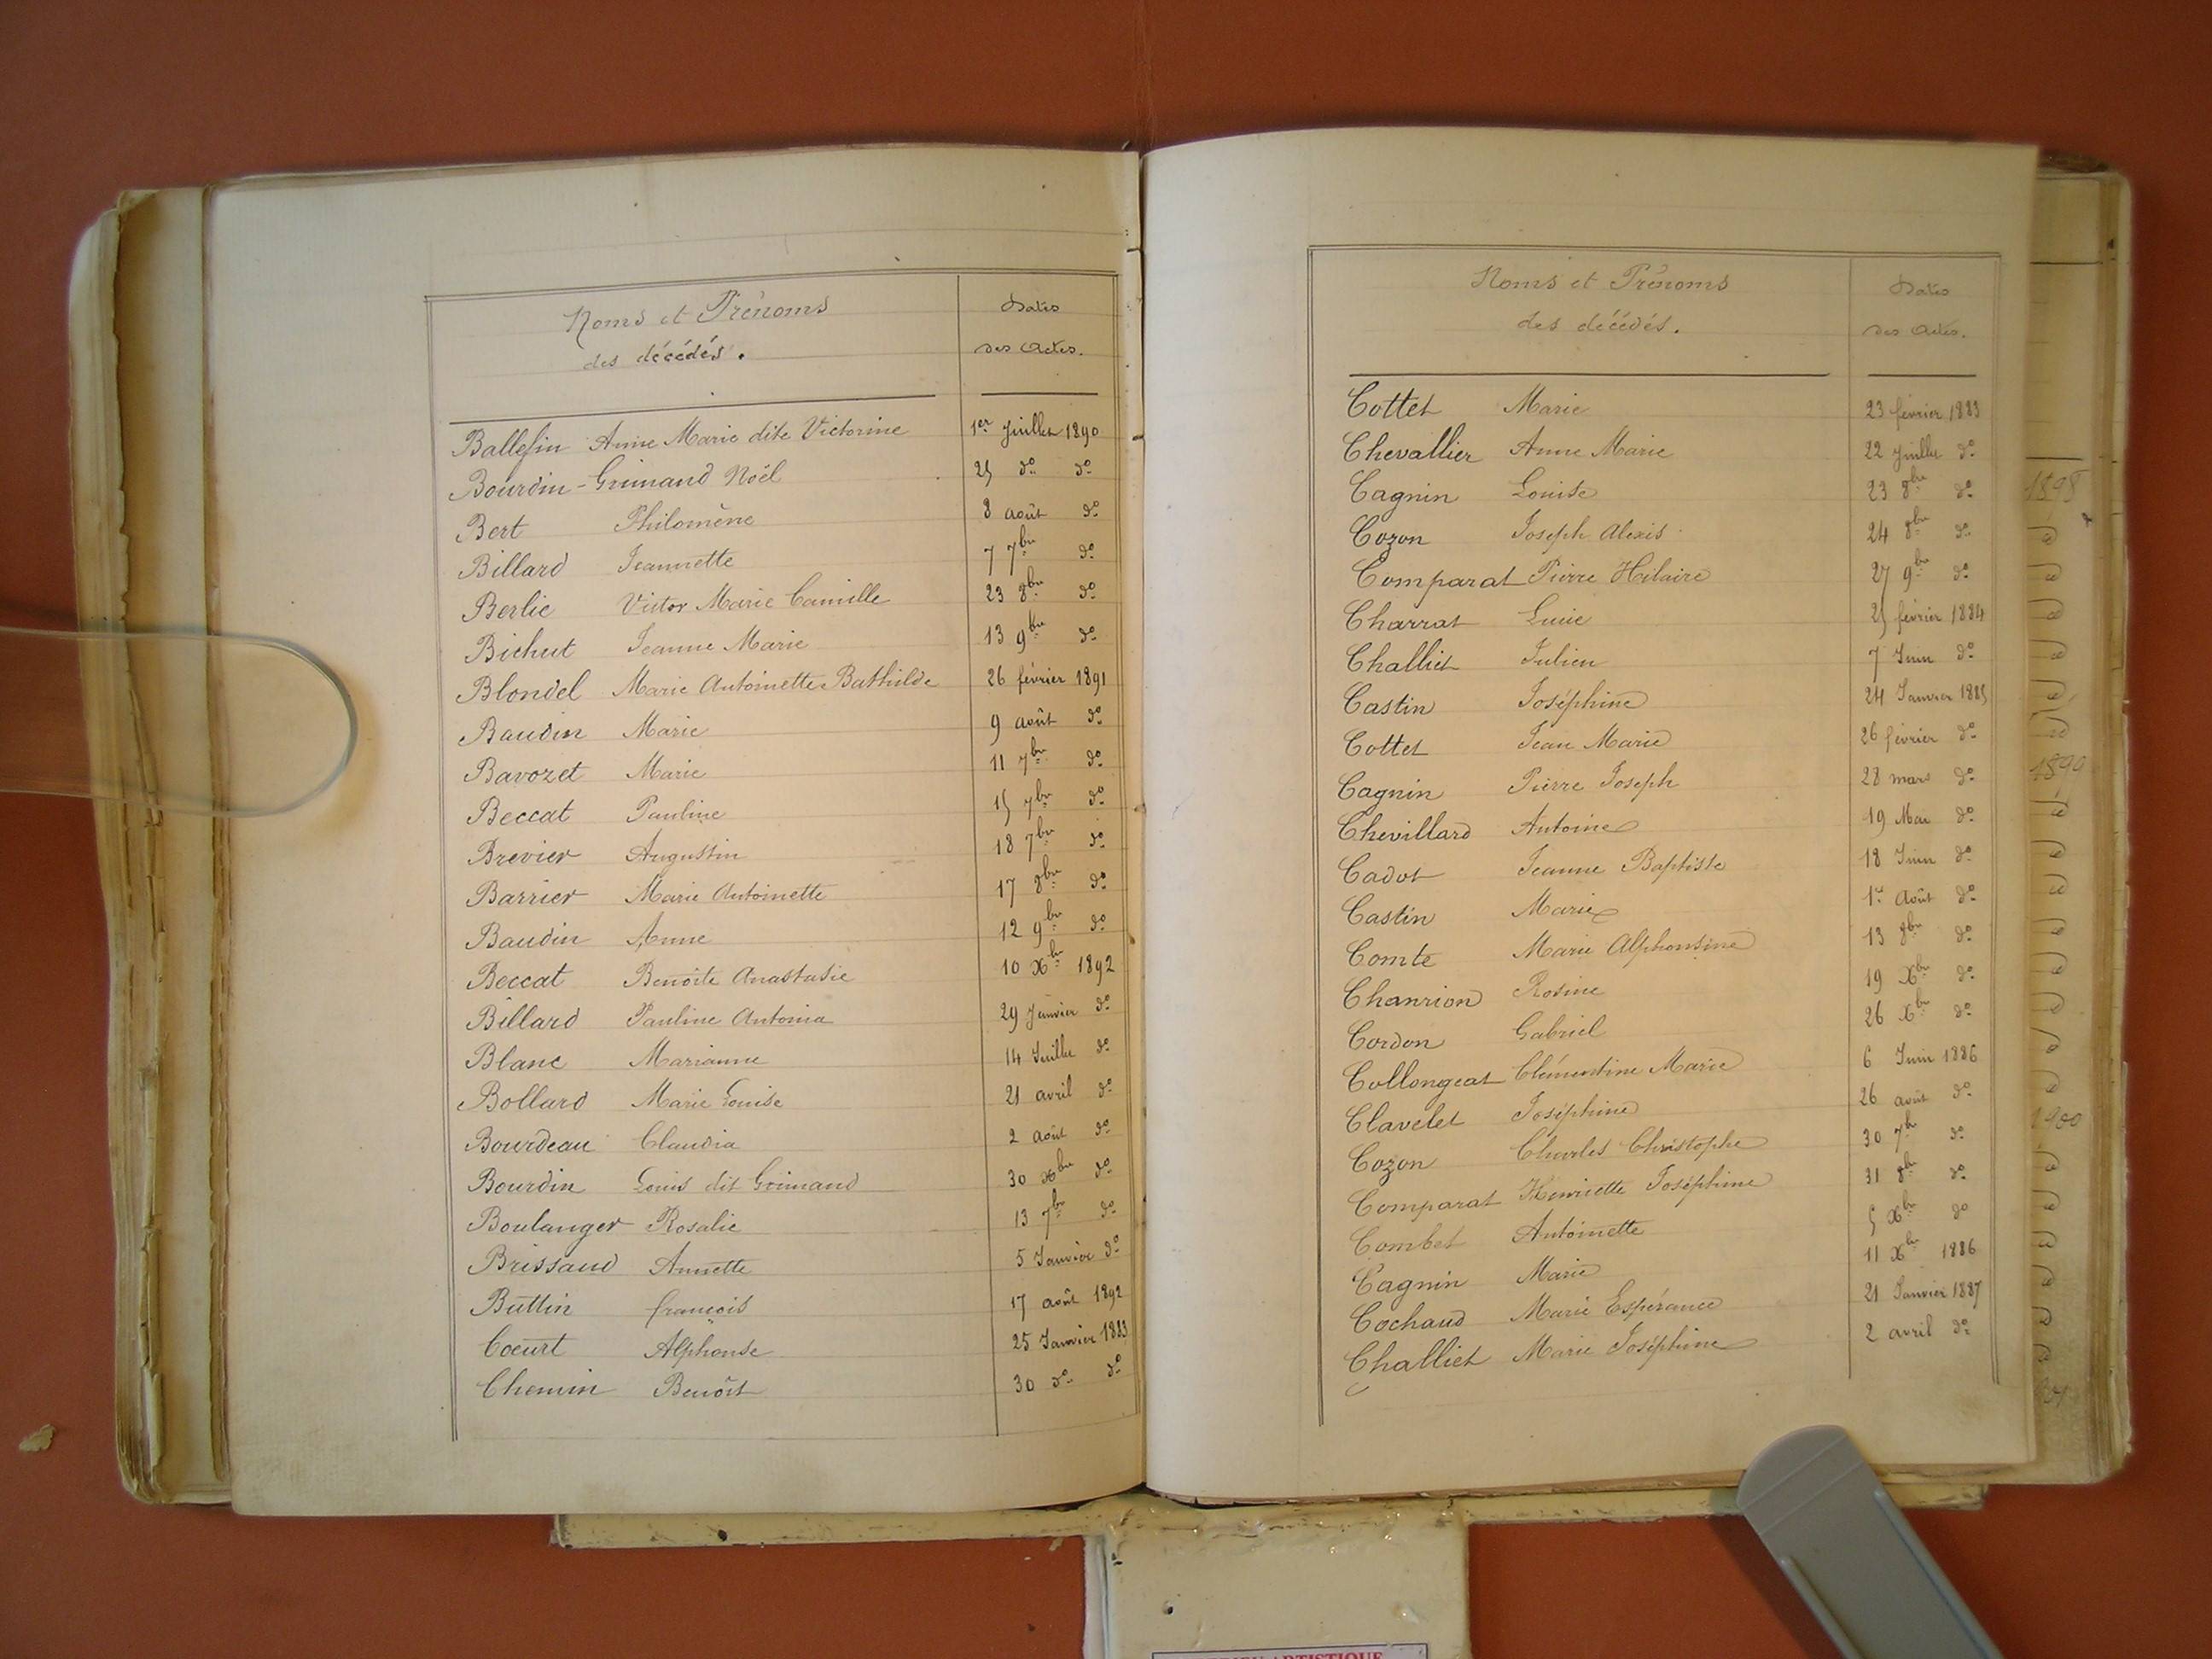 Noms et Prénoms
des décédés.
Dates
des Actes.
Ballefin Anne Marie dite Victorine 1er Juillet 1890
Bourdin-Grimaud Noël 25 do do
Bert Philomène 8 août do
Billard Jeannette 7 7bre do
Berlie Victor Marie Camille 23 8bre do
Bichut Jeanne Marie 13 9bre do
Blondel Marie Antoinette Bathilde 26 février 1891
Baudin Marie 9 août do
Bavozet Marie 11 7bre do
Beccat Pauline 15 7bre do
Brevier Augustin 18 7bre do
Barrier Marie Antoinette 17 8bre do
Baudin Anne 12 9bre do
Beccat Benoite Anastasie 10 Xbre 1892
Billard Pauline Antonia 29 Janvier do
Blanc Marianne 14 Juillet do
Bollard Marie Louise 21 avril do
Bourdeau Claudia 2 août do
Bourdin Louis dit Grimaud 30 Xbre do
Boulanger Rosalie 13 7bre do
Brissaud Annette 5 Janvier do
Buttin françois 17 août 1892
Coeurt Alphonse 25 Janvier 1883
Chemin Benoît 30 do do
Noms et Prénoms
des décédés.
Dates
des Actes.
Cottet Marie 23 février 1883
Chevallier Anne Marie 22 Juillet do
Cagnin Louise 23 8bre do
Cozon Joseph Alexis 24 8bre do
Comparat Pierre Hilaire 27 9bre do
Charrat Lucie 25 février 1884
Challiet Julien 7 Juin do
Castin Joséphine 24 Janvier 1885
Cottet Jean Marie 26 février do
Cagnin Pierre Joseph 28 mars do
Chevillard Antoine 19 Mai do
Cadot Jeanne Baptiste 18 Juin do
Castin Marie 1er Août do
Comte Marie Alphonsine 13 8bre do
Chanrion Rosine 19 Xbre do
Cordon Gabriel 26 Xbre do
Collongeat Clémentine Marie 6 Juin 1886
Clavelet Joséphine 26 août do
Cozon Charles Christophe 30 7bre do
Comparat Henriette Joséphine 31 8bre do
Combet Antoinette 5 Xbre do
Cagnin Marie 11 Xbre 1886
Cochaud Marie Espérance 21 Janvier 1887
Challiet Marie Joséphine 2 avril do
1898
1899
1900
ARTISTIQUE